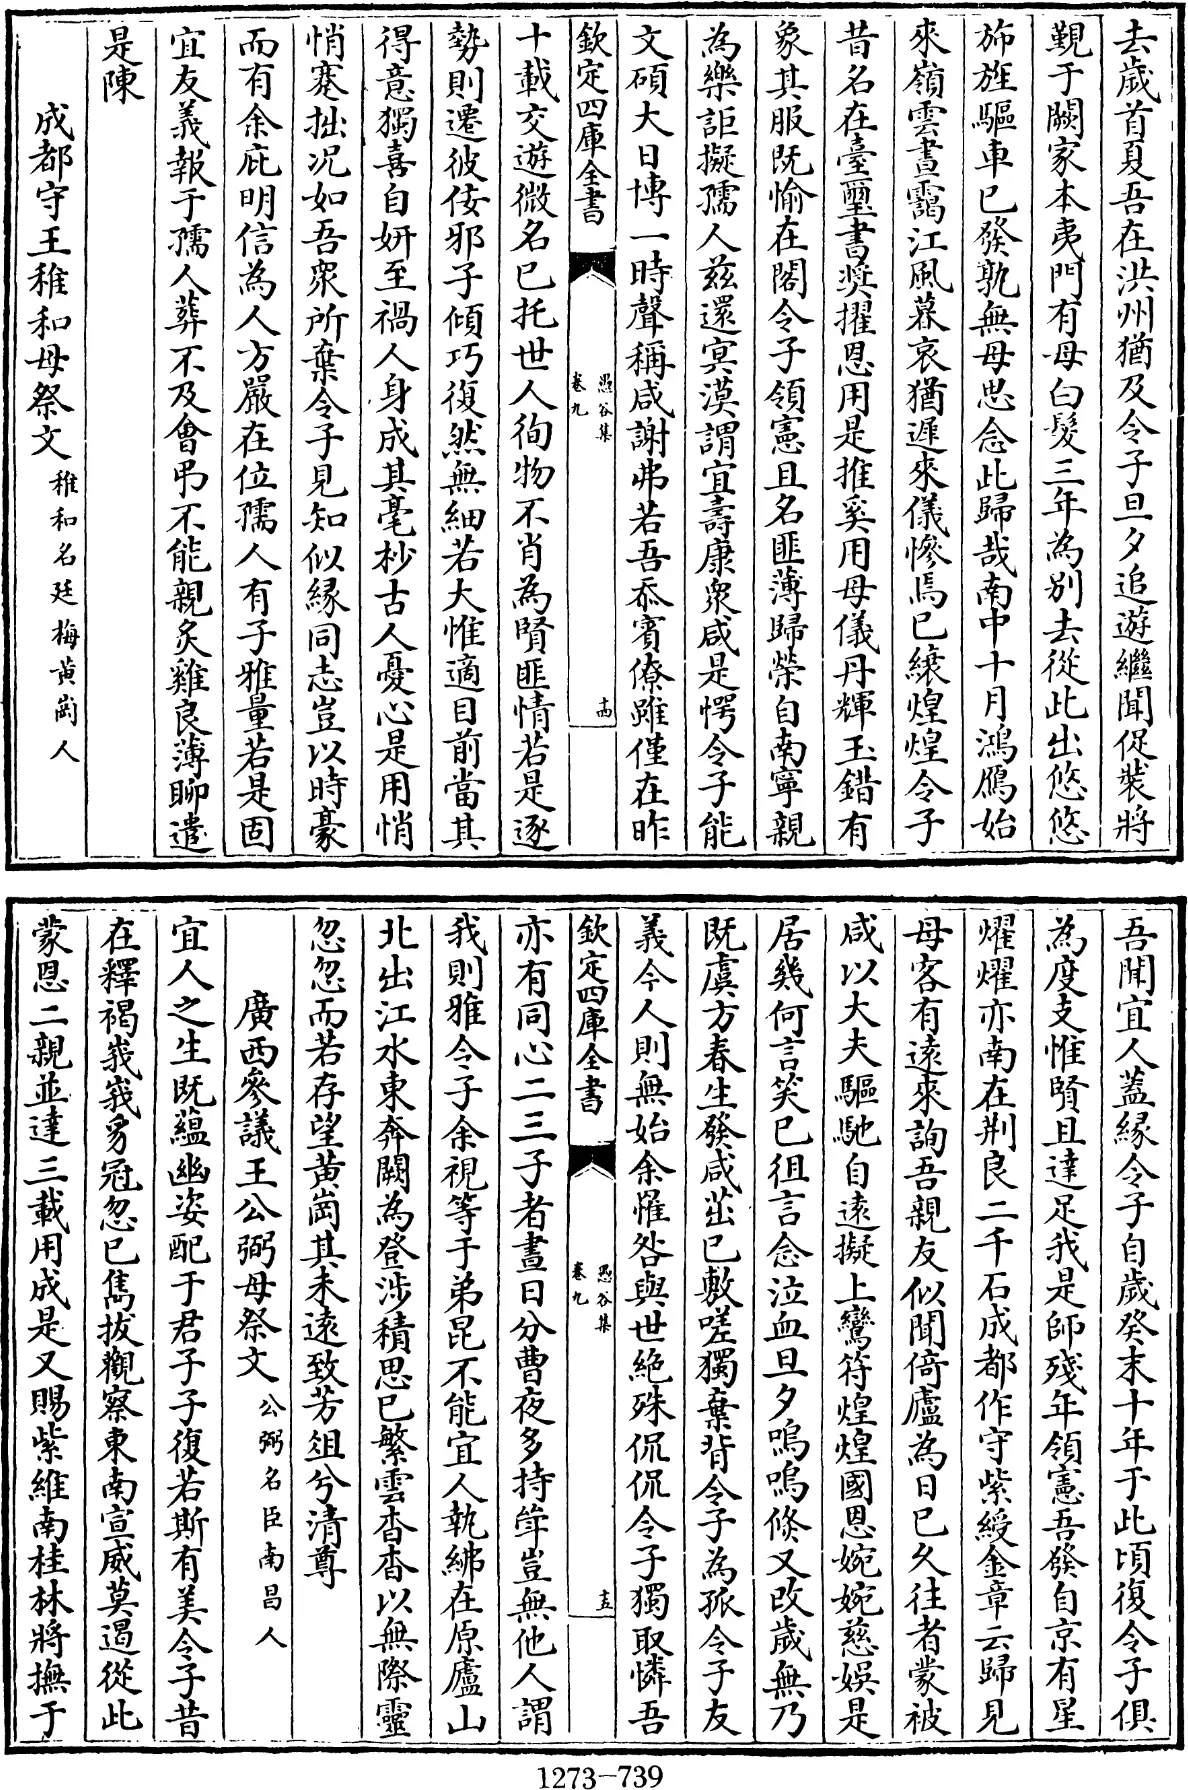 去歲首夏吾在洪州猶及令子旦夕追遊繼聞促裝將
覲于闕家本夷門有母白髮三年為别去從此出悠悠
斾旌驅車已發孰無母思念此歸哉南中十月鴻鴈始
來嶺雲晝靄江風暮哀猶遲來儀慘焉已縗煌煌令子
昔名在臺璽書奨擢恩用是推奚用母儀丹輝玉錯有
象其服既愉在閤令子領憲且名匪薄歸榮自南寧親
為樂詎擬孺人兹還㝠漠謂宜壽康衆咸是愕令子能
文碩大日博一時聲稱咸謝弗若吾忝賓僚雖僅在昨
欽定四庫全書
愚谷集
卷九
十四
十載交遊微名已托世人徇物不肖為賢匪情若是逐
勢則遷彼佞邪子傾巧復然無細若大惟適目前當其
得意獨喜自妍至禍人身成其毫杪古人憂心是用悄
悄蹇拙况如吾衆所棄令子見知似縁同志豈以時豪
而有余庇明信為人方嚴在位孺人有子雅量若是固
宜友義報于孺人葬不及會弔不能親炙雞良薄聊遣
是陳
成都守王稚和母祭文 稚和名廷梅黄岡人
吾聞宜人蓋縁令子自歲癸未十年于此頃復令子俱
為度支惟賢且達足我是師殘年領憲吾發自京有星
燿燿亦南在荆良二千石成都作守紫綬金章云歸見
母客有遠來詢吾親友似聞倚廬為日已久往者蒙被
咸以大夫驅馳自遠擬上鸞符煌煌國恩婉婉慈娱是
居幾何言笑已徂言念泣血旦夕嗚嗚倐又改歲無乃
既虞方春生發咸茁已敷嗟獨棄背令子為孤令子友
義今人則無始余罹咎與世絶殊侃侃令子獨取憐吾
欽定四庫全書
愚谷集
卷九
十五
亦有同心二三子者晝日分曹夜多持斝豈無他人謂
我則雅令子余視等于弟昆不能宜人執紼在原廬山
北出江水東奔闕為登涉積思已繁雲杳杳以無際靈
忽忽而若存望黄岡其未遠致芳俎兮清尊
廣西參議王公弼母祭文 公弼名臣南昌人
宜人之生既藴幽姿配于君子子復若斯有美令子昔
在釋褐峩峩豸冠忽已雋拔觀察東南宣威莫遏從此
蒙恩二親並達三載用成是又賜紫維南桂林將撫于
1273-739